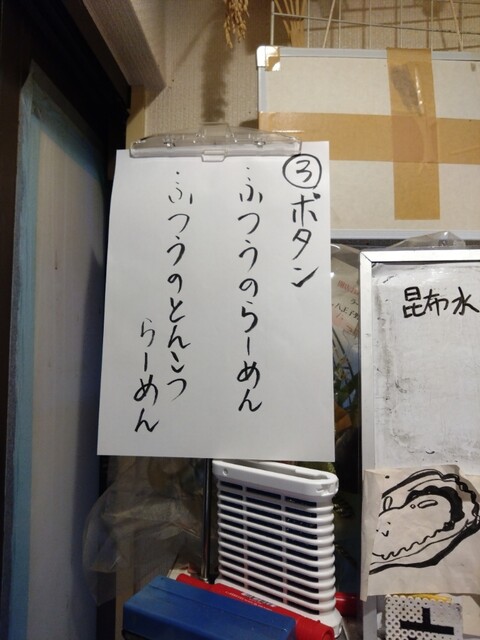 ③ボタン
ふつうのらーめん
ふつうのとんこつ
らーめん
昆布水